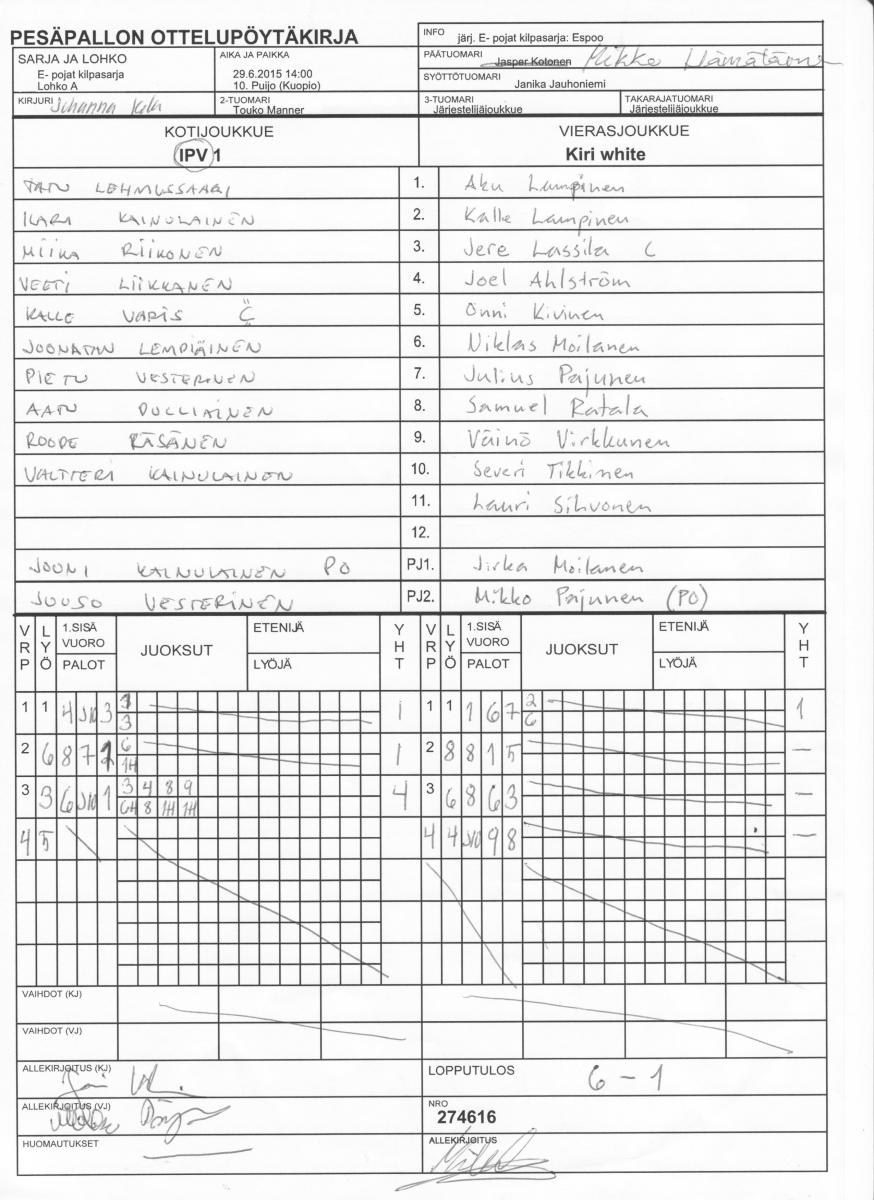 PESÄPALLON OTTELUPÖYTÄKIRJA
INFO järj. E- pojat kilpasarja: Espoo
PÄÄTUOMARI Jasper Kotonen Mikko
SARJA JA LOHKO
E- pojat kilpasarja
Lohko A
AIKA JA PAIKKA
29.6.2015 14:00
10. Puijo (Kuopio)
SYÖTTÖTUOMARI
Janika Jauhoniemi
KIRJURI Johanna
2-TUOMARI
Touko Manner
3-TUOMARI
Järjestelijäjoukkue
TAKARAJATUOMARI
Järjestelijäjoukkue
KOTIJOUKKUE
IPV 1
VIERASJOUKKUE
Kiri white
TATU LEHMUSSAARI 1. Aku Lampinen
ILARI KAINULAINEN 2. Kalle Lampinen
MIIKA RIIKONEN 3. Jere Lassila C
VEETI LIIKKANEN 4. Joel Ahlström
KALLE VARIS C 5. Onni Kivinen
JOONATAN LEMPIÄINEN 6. Niklas Moilanen
PIETU VESTERINEN 7. Julius Pajunen
AATU PULLIAINEN 8. Samuel Ratala
ROOPE RÄSÄNEN 9. Väinö Virkkunen
VALTTERI KAINULAINEN 10. Severi Tikkinen
11. Lauri Sihvonen
12.
JOUNI KAINULAINEN PO PJ1. Jirka Moilanen
JUUSO VESTERINEN PJ2. Mikko Pajunen (PO)
VRP LYÖ 1.SISÄ VUORO PALOT JUOKSUT ETENIJÄ LYÖJÄ YHT VRP LYÖ 1.SISÄ VUORO PALOT JUOKSUT ETENIJÄ LYÖJÄ YHT
1 1 4 3 3 1 1 1 1 6 7 2 6 1
2 6 8 7 6 1H 1 2 8 8 1 5 —
3 3 6 1 3 4 8 9 4 3 6 8 6 3 —
8 1H 1H
4 5 4 4 9 8 —
VAIHDOT (KJ)
VAIHDOT (VJ)
ALLEKIRJOITUS (KJ)
LOPPUTULOS 6 - 1
ALLEKIRJOITUS (VJ)
NRO
274616
HUOMAUTUKSET
ALLEKIRJOITUS